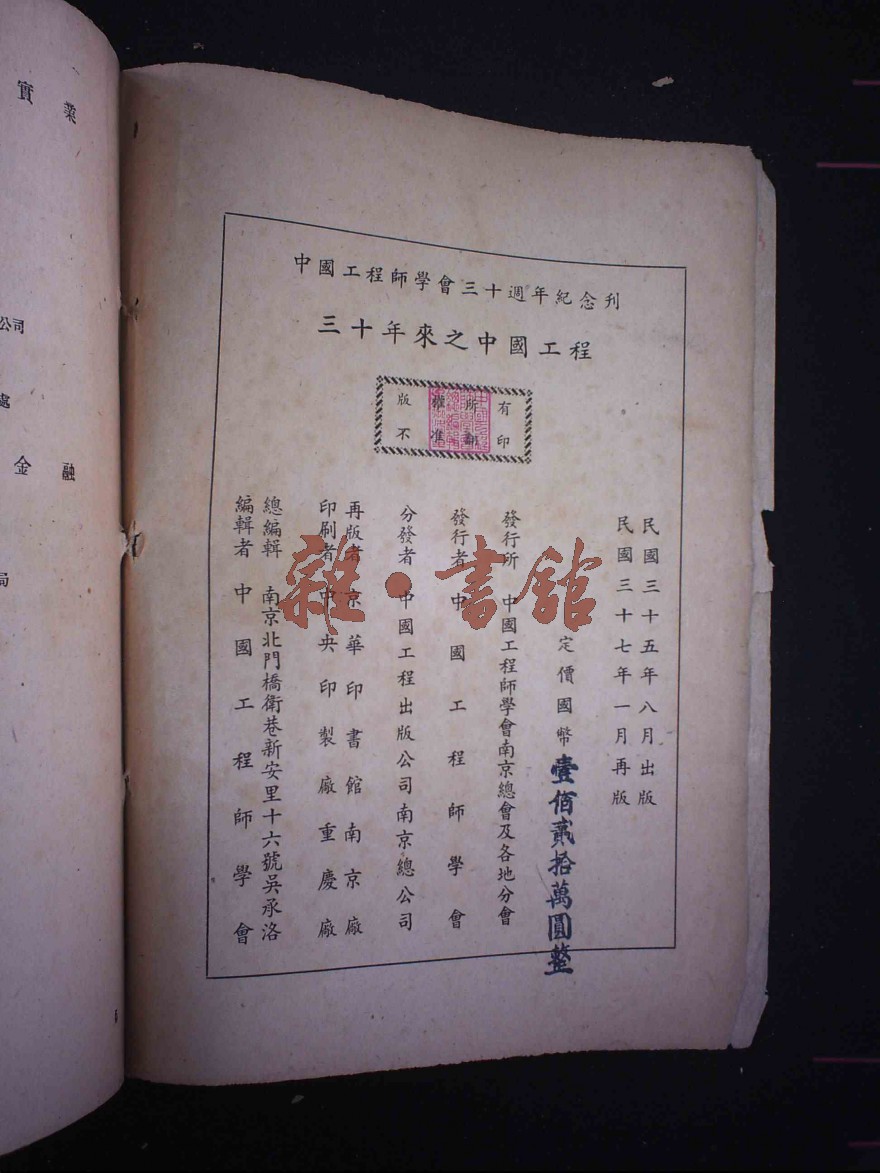 中國工程師學會三十週年紀念刊
三十年來之中國工程
版權所有
不准翻印
民國三十五年八月出版
民國三十七年一月再版
定價國幣壹佰貳拾萬圓整
發行所 中國工程師學會南京總會及各地分會
發行者 中國工程師學會
分發者 中國工程出版公司南京總公司
再版者 京華印書館南京廠
印刷者 中央印製廠重慶廠
總編輯 南京北門橋衛巷新安里十六號吳承洛
編輯者 中國工程師學會
雜·書館
實業
公司
處
金融
局